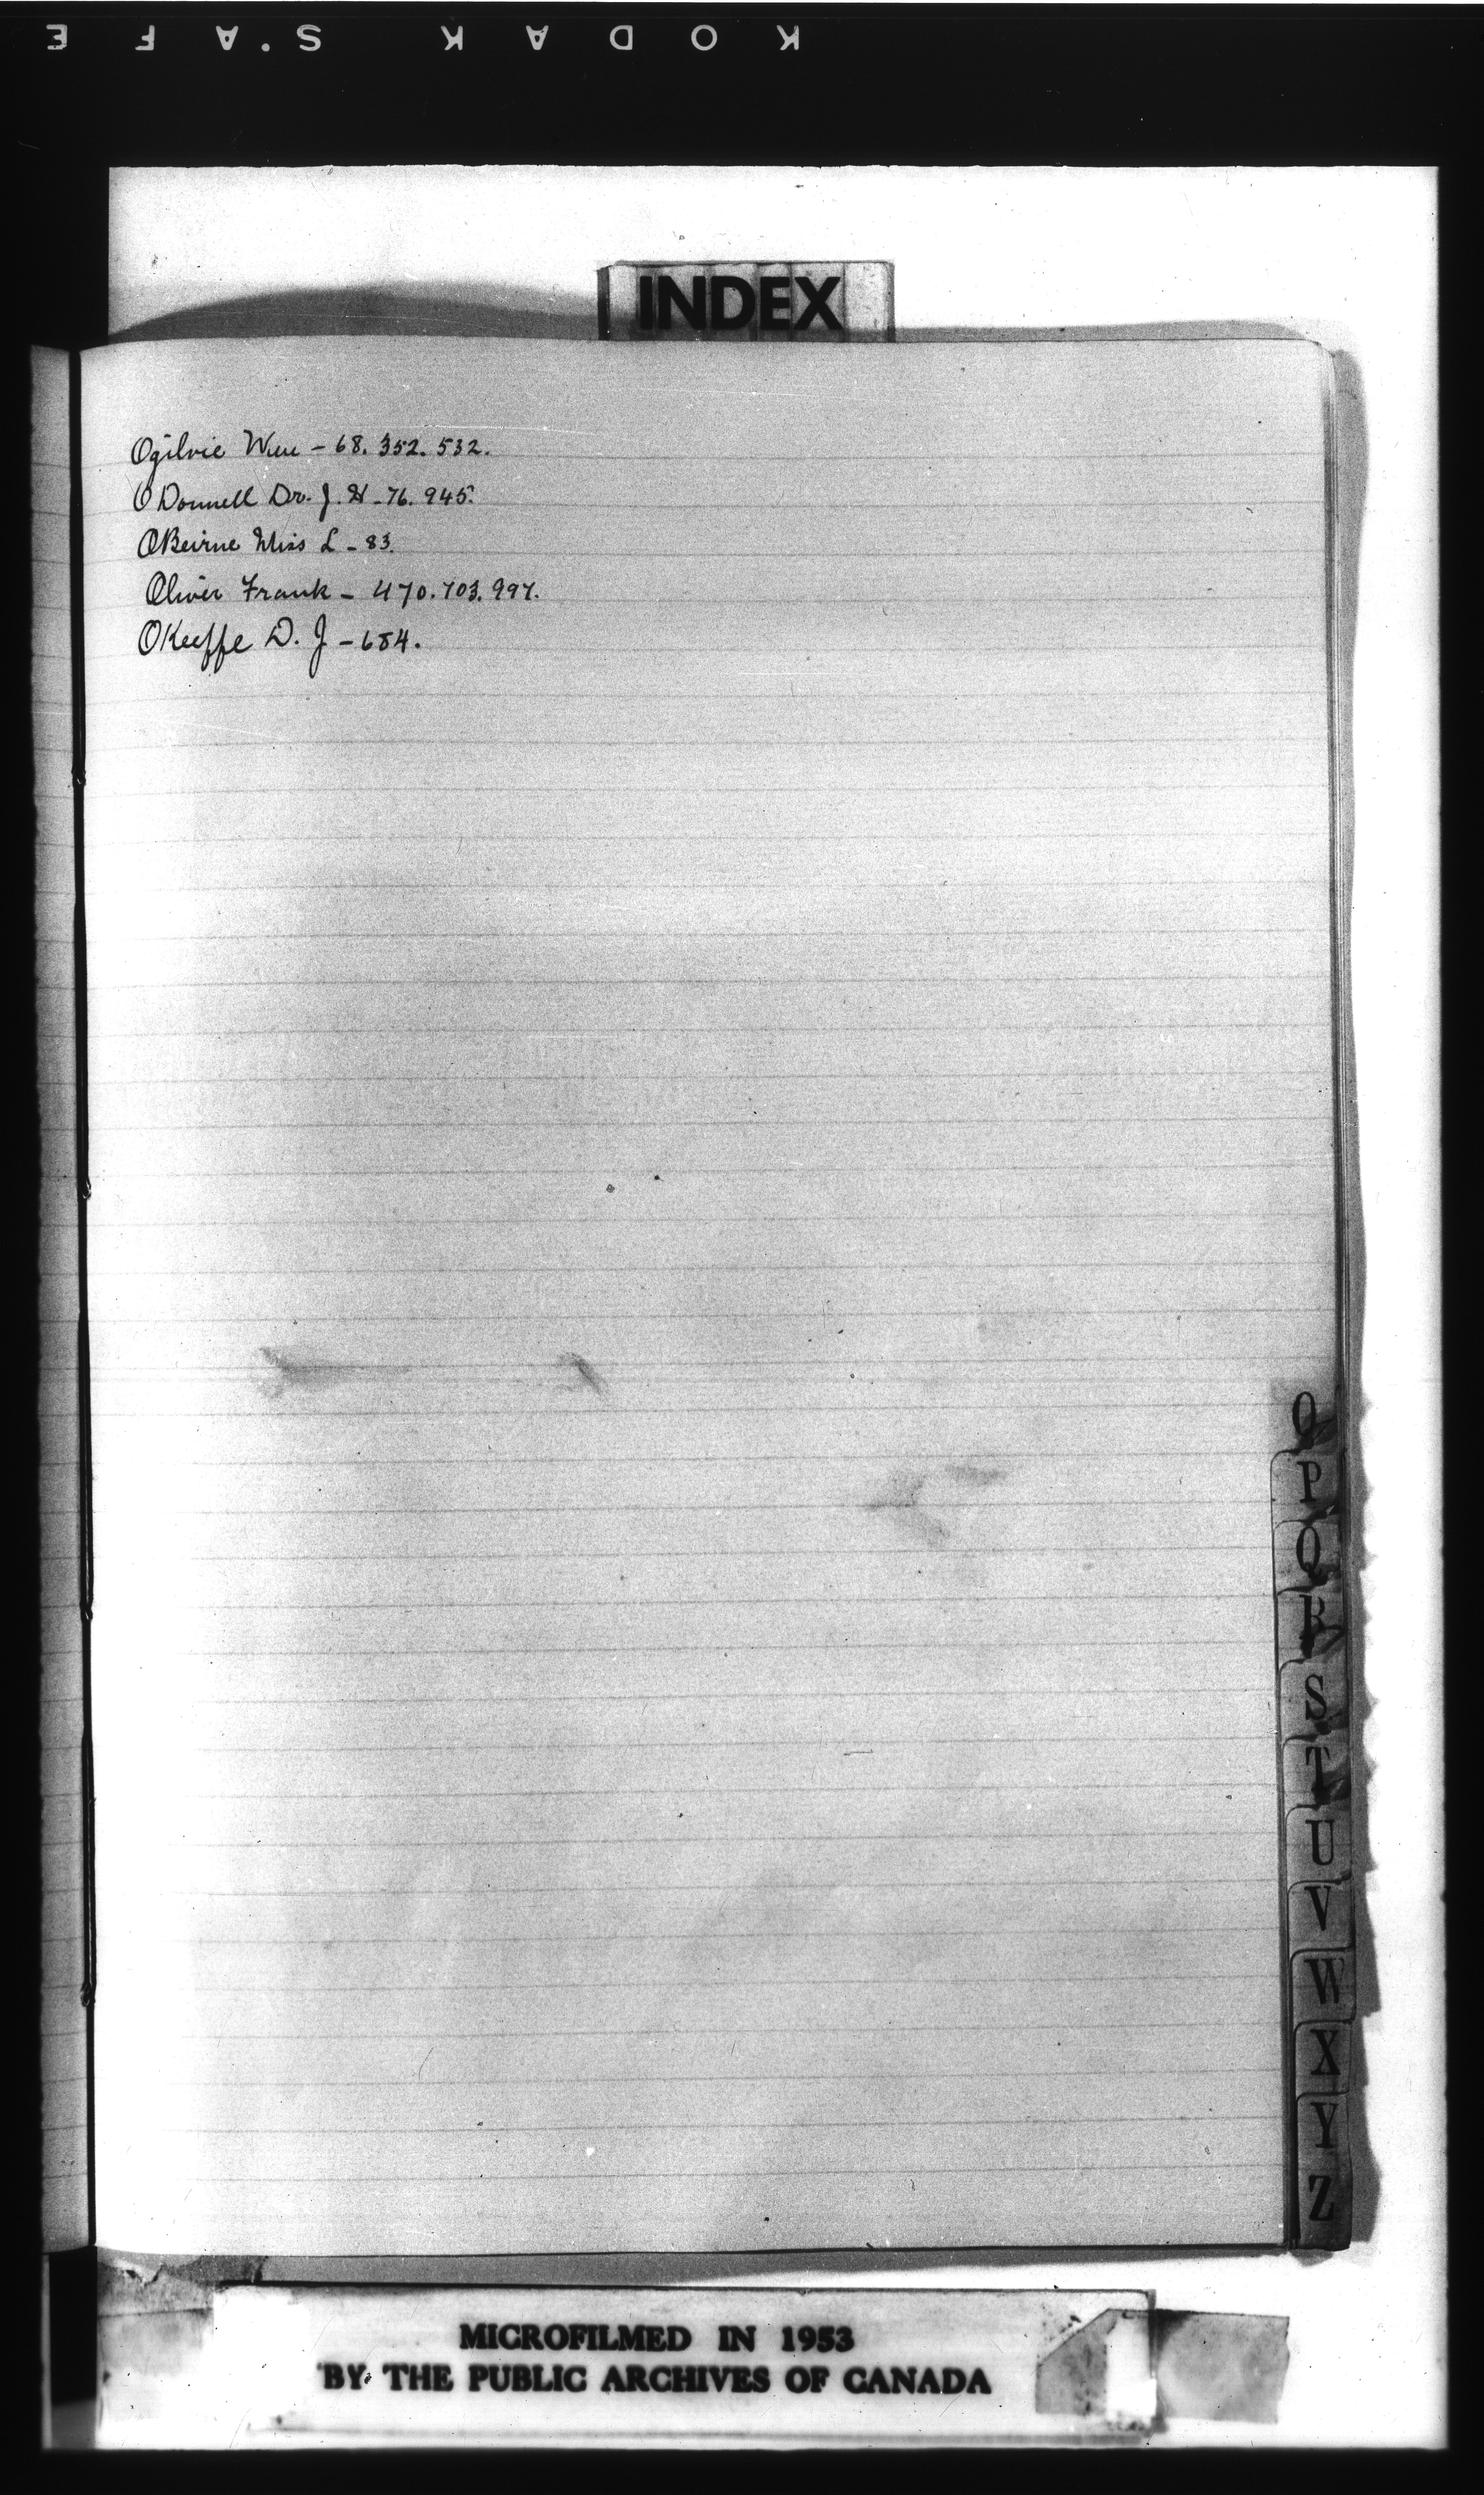 KODAK S.AFE
INDEX
Ogilvie Wm - 68. 352. 532.
O Donnell Dr. J. H - 76. 945.
OBeirne Miss L - 83.
Oliver Frank - 470. 703. 997.
OKeeffe D. J - 684.
O
P
Q
R
S
T
U
V
W
X
Y
Z
MICROFILMED IN 1953
BY THE PUBLIC ARCHIVES OF CANADA